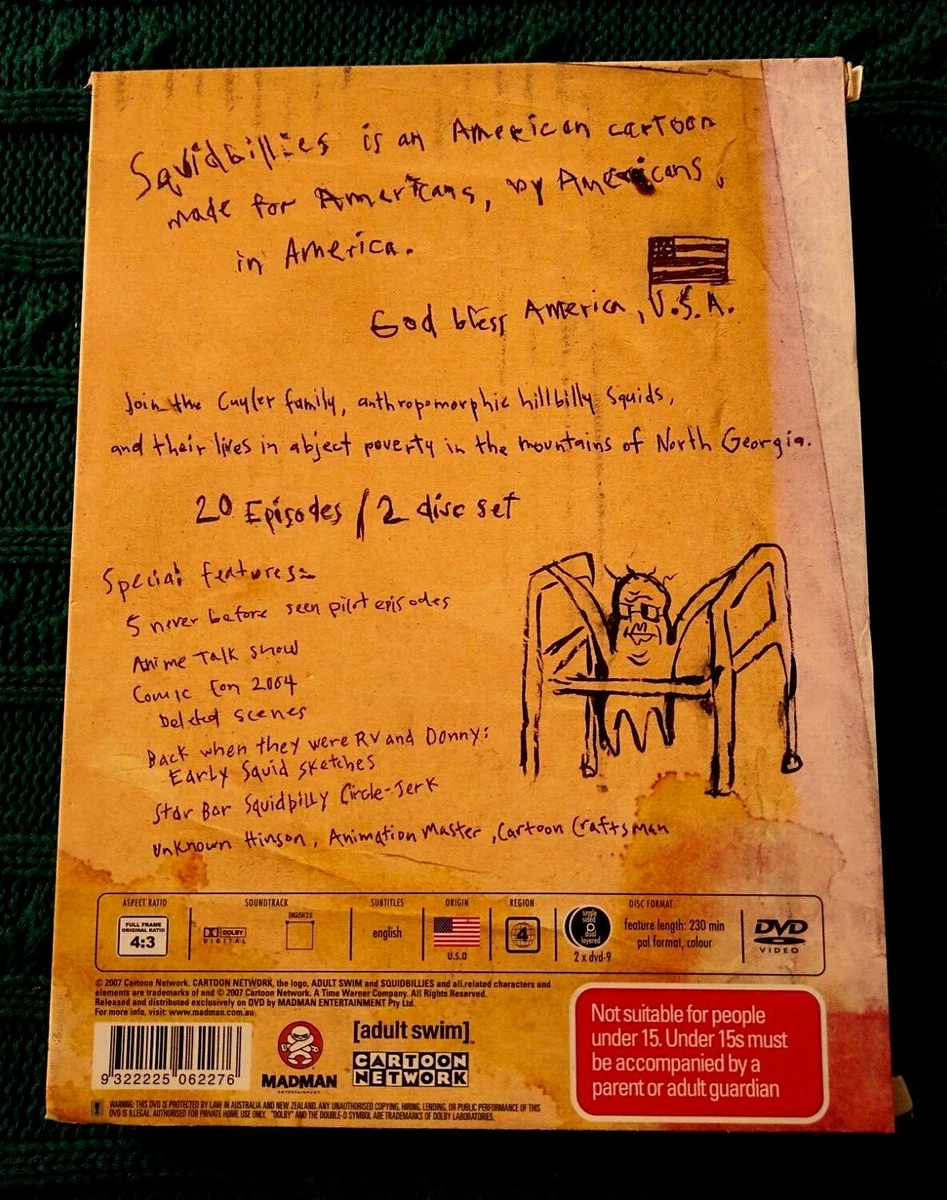 Squidbillies is an American cartoon
made for Americans, by Americans,
in America.
God bless America, U.S.A.
Join the Cuyler family, anthropomorphic hillbilly squids,
and their lives in abject poverty in the mountains of North Georgia.
20 Episodes / 2 disc set
Special features:
5 never before seen pilot episodes
Anime Talk Show
Comic Con 2004
Deleted scenes
Back when they were RV and Donny:
Early Squid sketches
Star Bar Squidbilly Circle-Jerk
Unknown Hinson, Animation Master, Cartoon Craftsman
ASPECT RATIO SOUNDTRACK SUBTITLES ORIGIN REGION DISC FORMAT
FULL FRAME
ORIGINAL RATIO
4:3
DOLBY
DIGITAL
ENGLISH 2.0
english
U.S.A
4
single
sided
dual
layered
2 x dvd-9
feature length: 230 min
pal format, colour
DVD
VIDEO
© 2007 Cartoon Network. CARTOON NETWORK, the logo, ADULT SWIM and SQUIDBILLIES and all related characters and
elements are trademarks of and © 2007 Cartoon Network. A Time Warner Company. All Rights Reserved.
Released and distributed exclusively on DVD by MADMAN ENTERTAINMENT Pty Ltd.
For more info, visit: www.madman.com.au
9 322225 062276
MADMAN
ENTERTAINMENT
[adult swim]™
CARTOON
NETWORK
Not suitable for people
under 15. Under 15s must
be accompanied by a
parent or adult guardian
WARNING: THIS DVD IS PROTECTED BY LAW IN AUSTRALIA AND NEW ZEALAND. ANY UNAUTHORISED COPYING, HIRING, LENDING, OR PUBLIC PERFORMANCE OF THIS
DVD IS ILLEGAL. AUTHORISED FOR PRIVATE HOME USE ONLY. "DOLBY" AND THE DOUBLE-D SYMBOL ARE TRADEMARKS OF DOLBY LABORATORIES.